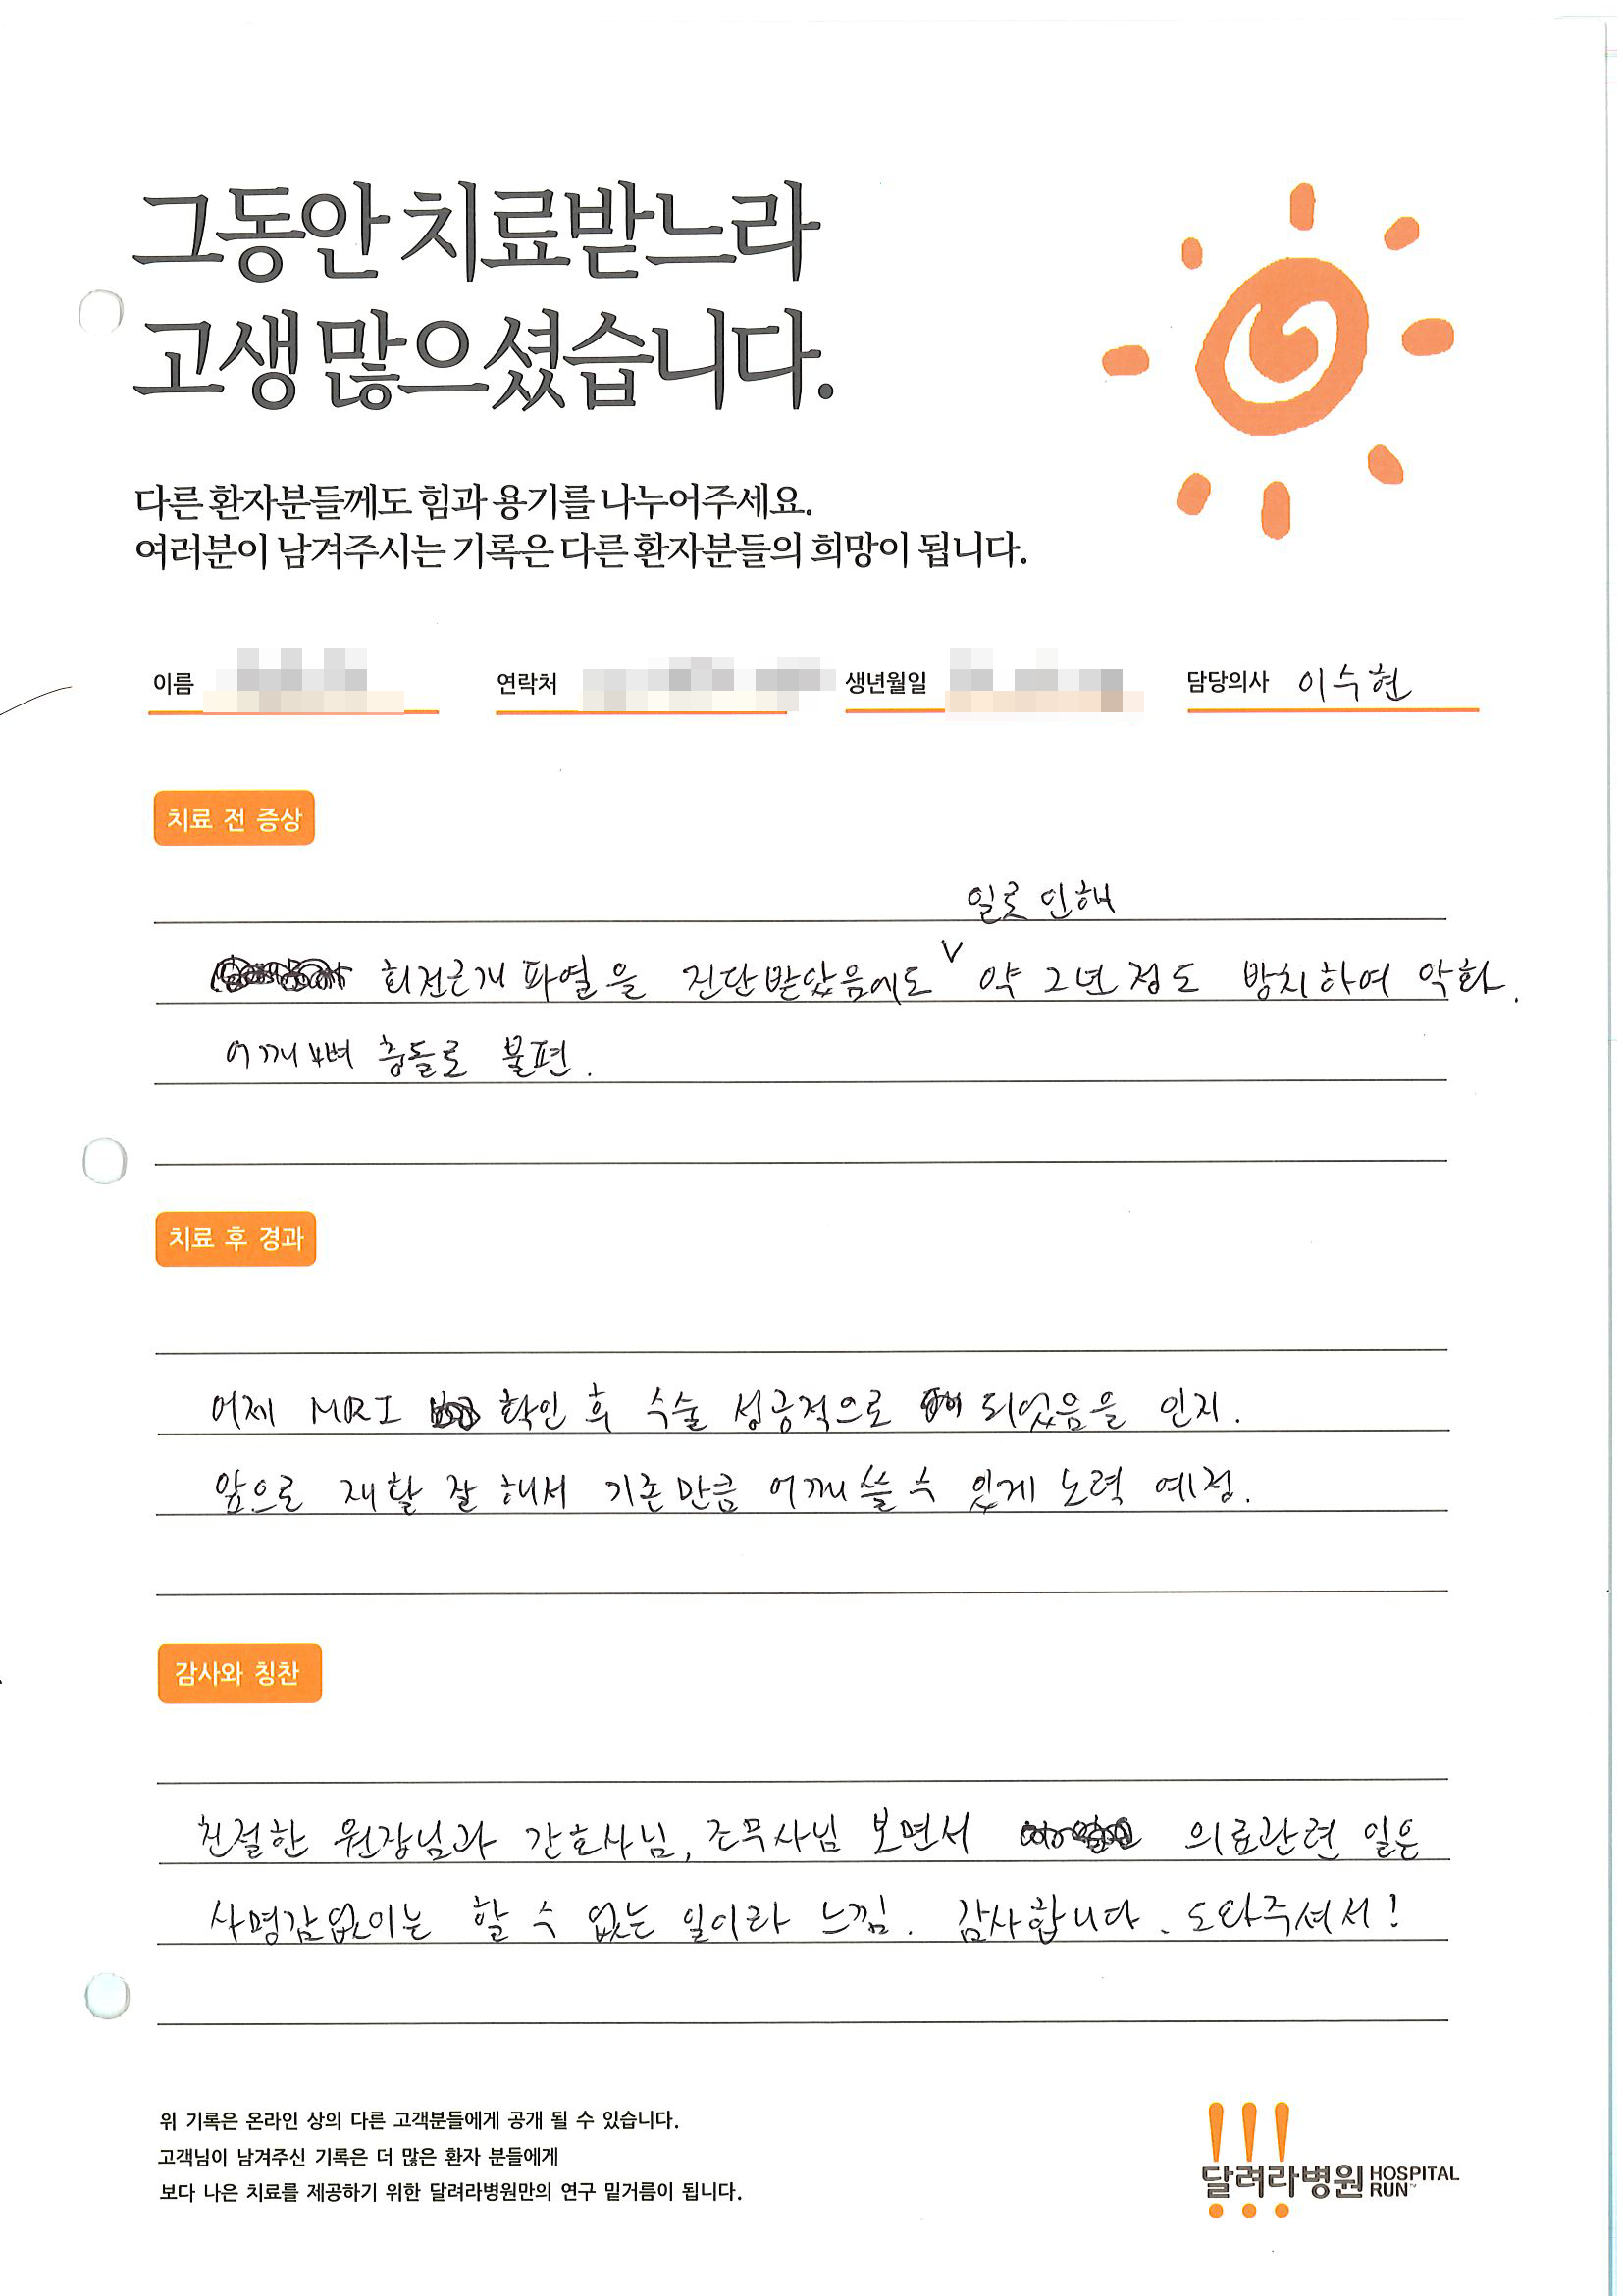 그동안 치료받느라
고생 많으셨습니다.
다른 환자분들께도 힘과 용기를 나누어주세요.
여러분이 남겨주시는 기록은 다른 환자분들의 희망이 됩니다.
이름 연락처 생년월일 담당의사 이수현
치료 전 증상
일로 인해
회전근개 파열을 진단받았음에도 V 약 2년 정도 방치하여 악화.
어깨뼈 충돌로 불편.
치료 후 경과
어제 MRI 확인 후 수술 성공적으로 되었음을 인지.
앞으로 재활 잘 해서 기존만큼 어깨 쓸 수 있게 노력 예정.
감사와 칭찬
친절한 원장님과 간호사님, 조무사님 보면서 의료관련 일은
사명감없이는 할 수 없는 일이라 느낌. 감사합니다. 도와주셔서!
위 기록은 온라인 상의 다른 고객분들에게 공개 될 수 있습니다.
고객님이 남겨주신 기록은 더 많은 환자 분들에게
보다 나은 치료를 제공하기 위한 달려라병원만의 연구 밑거름이 됩니다.
달려라병원 HOSPITAL RUN